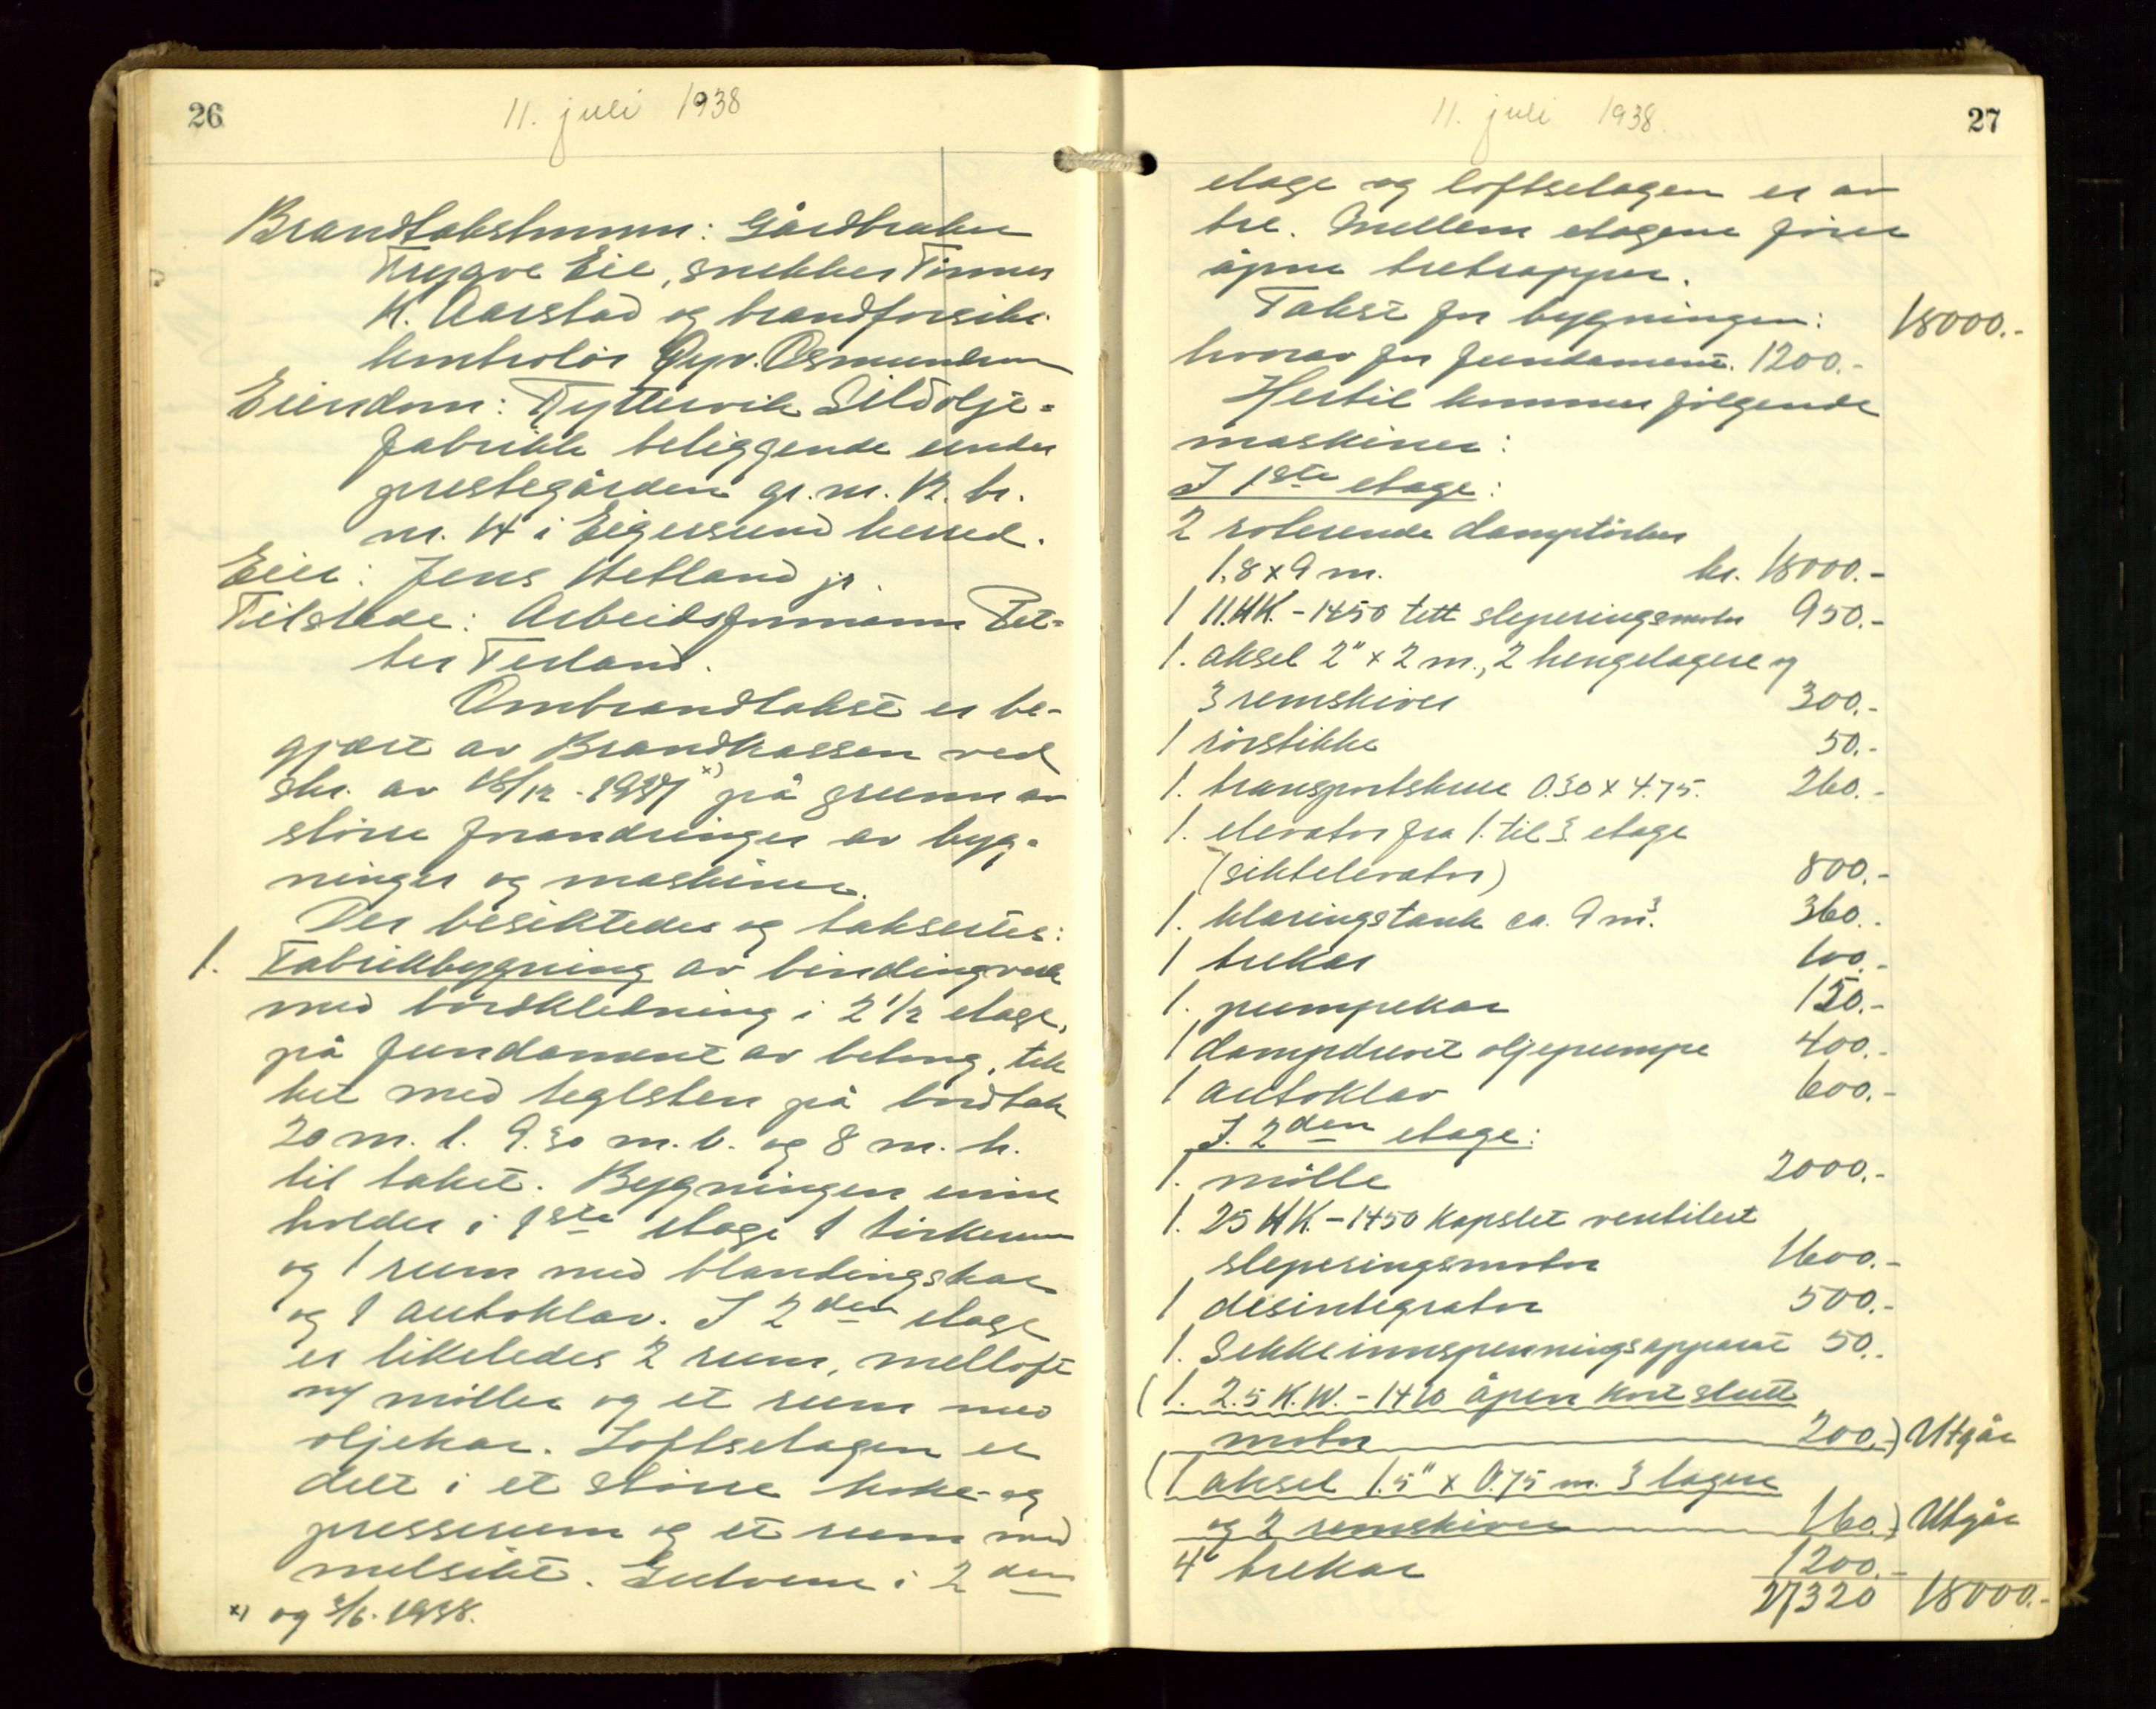 26
11. juli 1938
Brandtakstmenn: Gårdbruker
Trygve Eie, snekker Tinnes
K. Aarstad og brandforsikr.
kontrolør Osmundsen
Eiendom: Tyttervik Sildolje-
fabrikk beliggende under
prestegården gr. nr. 12. br.
nr. 14 i Eigersund herred.
Eier: Jens Hetland jr.
Tilstede: Arbeidsformann Pet-
ter Terland.
Ombrandtakst er be-
gjært av Brandkassen ved
skr. av 18/12-1937 x) på grunn av
større forandringer av byg-
ninger og maskiner.
Der besiktedes og taksertes:
1. Fabrikbygning av bindingverk
med bordkledning i 2 1/2 etage,
på fundament av betong, tek
ket med teglsten på bordtak
20 m. l. 9.30 m. b. og 8 m. h.
til taket. Bygningen inne
holder i 1ste etage 1 tørkerum
og 1 rum med blandingskar
og 1 autoklav. I 2den etage
er likeledes 2 rum, melloft
m/ møller og et rum med
oljekar. Loftsetagen er
delt i et større koke- og
presserum og et rum med
melsikt. Gulvene i 2den
x) og 3/6-1938.
11. juli 1938.
27
etage og loftsetagen er av
tre. Mellem etagene fører
åpne tretrapper.
Takst for bygningen: 18000.-
hvorav for fundament. 1200.-
Hertil kommer følgende
maskiner:
I 1ste etage:
2 roterende damptørker
1,8 x 9 m. kr. 18000.-
1 11.HK. - 1450 tett sleperingsmotor 950.-
1. aksel 2" x 2 m., 2 hengelagere og
3 remskiver 300.-
1 rørstikke 50.-
1. transportskrue 0.30 x 4.75. 260.-
1. elevator fra 1. til 3. etage
(siktelevator) 800.-
1. klaringstank ca. 9 m³. 360.-
1 trekar 100.-
1. pumpekar 150.-
1 dampdrevet oljepumpe 400.-
1 autoklav 600.-
I. 2den etage:
1. mølle 2000.-
1. 25 HK. - 1450 kapslet ventilert
sleperingsmotor 1600.-
1 desintegrator 500.-
1. Sekkeinnspenningsapparat 50.-
(1. 2.5 K.W. - 1420 åpen kortslutt
motor 200.-) Utgår
(1 aksel 1.5" x 0.75 m. 3 lagere
og 2 remskiver 160.-) Utgår
4 trekar 1200.-
27320 18000.-